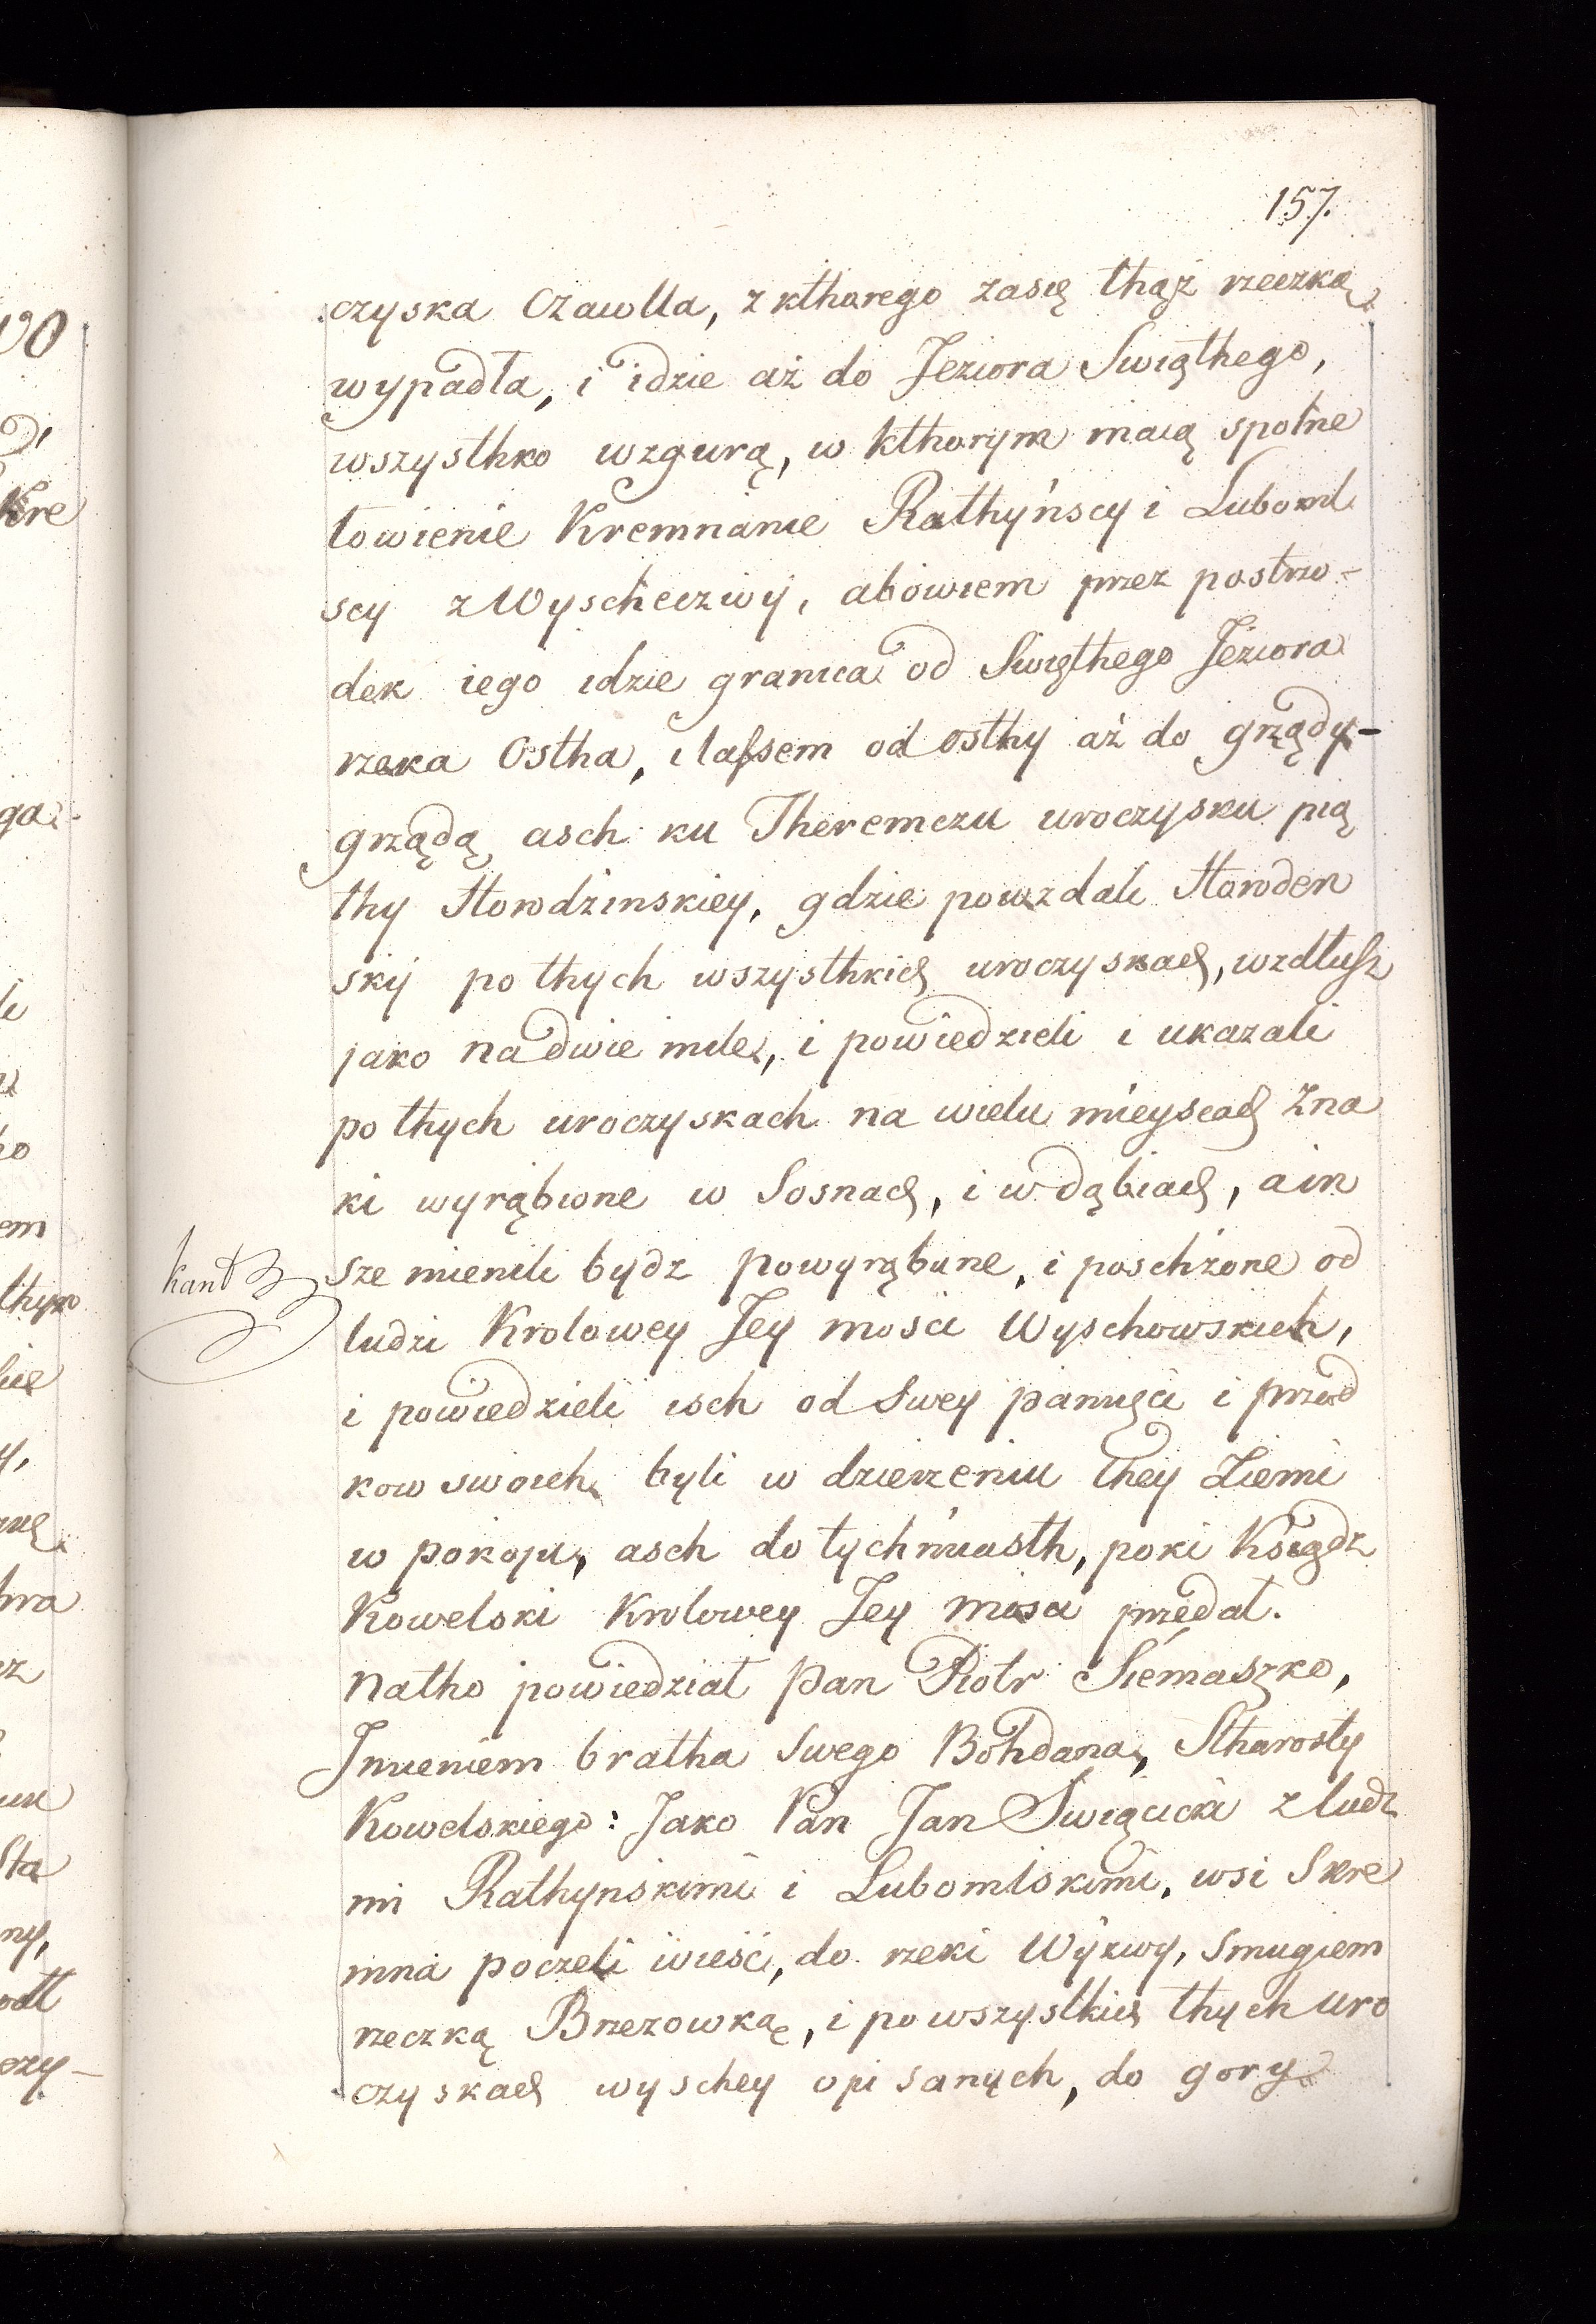 157.
czyska Czawlla, z kthorego zasię thąż rzeczka
wypadła, i idzie aż do Jeziora Swiąthego,
wszysthko wzgurą, w kthorym maią spolne
łowienie Kremnanie Rathyńscy i Luboml
scy z Wyschecziwy, abowiem przez postrzo-
dek iego idzie granica od Swięthego Jeziora
rzeka Ostha, i lassem od osthy aż do grządy-
grządą asch ku Theremczu uroczysku pią
thy Horodzinskiey, gdzie powzdali Horoden
sky po thych wszysthkich uroczyskach, wzdłusz
jako na dwie mile, i powiedzieli i ukazali
po thych uroczyskach na wielu mieyscach Zna
ki wyrąbione w Sosnach, i w dąbiach, a in
sze mienili bydz powyrąbane, i poschżone od
ludzi Krolowey Jey mosci Wyschowskich,
i powiedzieli isch od Swey pamięci i przod
kow swoich byli w dzierzeniu they Ziemi
w pokoju, asch do tychmiasth, poki Ksiądz
Kowelski Krolowey Jey mosci przedał.
Natho powiedział Pan Piotr Siemaszko,
Jmieniem bratha Swego Bohdana, Stharosty
Kowelskiego: Jako Pan Jan Swięcicki z ludz
mi Rathynskimi i Lubomlskimi, wsi Skre
mna poczeli wieść, do rzeki Wyzwy, Smugiem
rzeczką Brzezowką, i po wszystkich thych uro
czyskach wyschey opisanych, do gory
kant